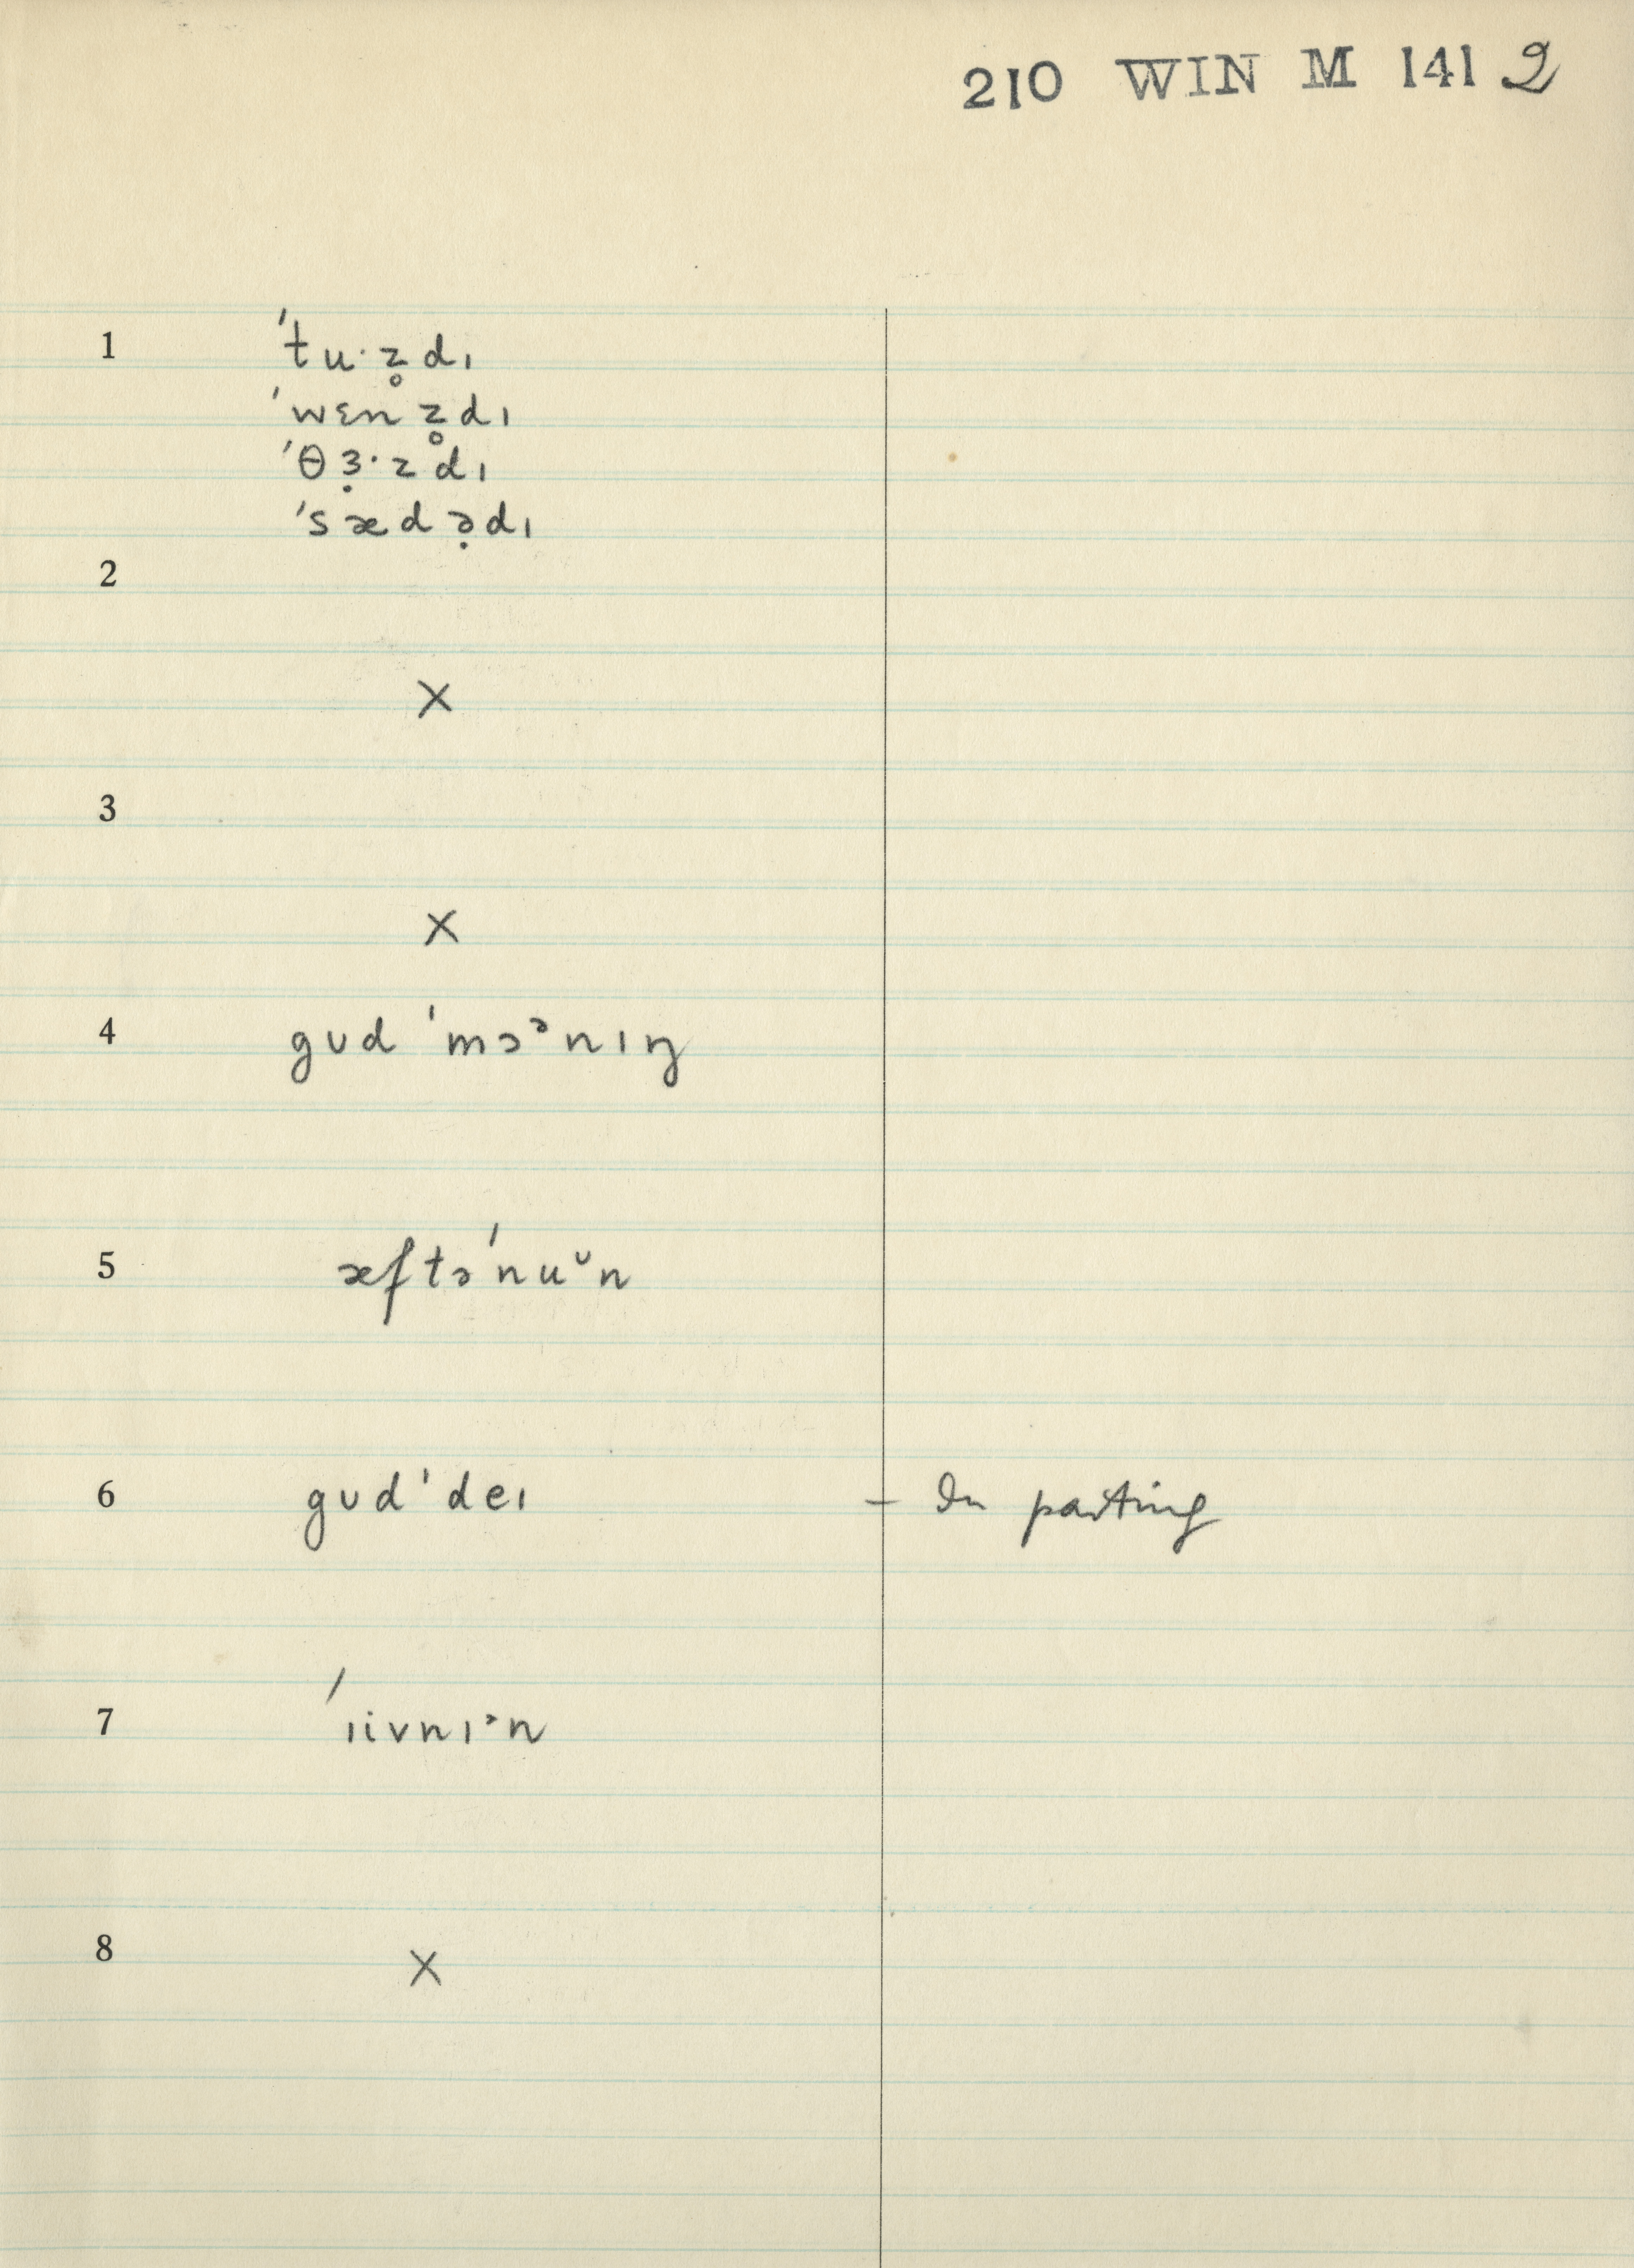 210 WIN M 141 2
1 ˈtu·z̥dɪ
ˈwɛnz̥dɪ
ˈθɜ̣·zdɪ
ˈsædə̣dɪ
2
×
3
×
4 gʊd ˈmɔᵊnɪŋ
5 æftəˈnuᶷn
6 gʊdˈdeɪ – In parting
7 ˈɪivnɪᵊn
8 ×